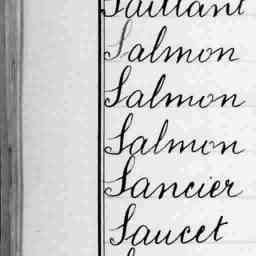 Saillant
Salmon
Salmon
Salmon
Sancier
Saucet